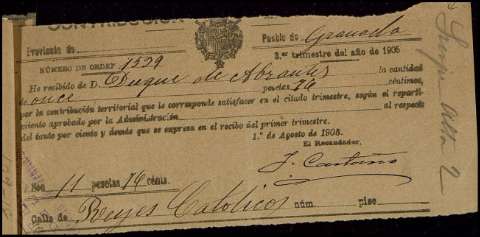 CONTRIBUCION
Provincia de Pueblo de Granada
NÚMERO DE ORDEN 1529 3.er trimestre del año de 1905
He recibido de D. Duque de Abrantes la cantidad
once pesetas 76 céntimos,
por la contribución territorial que le corresponde satisfacer en el citado trimestre, según el reparti-
miento aprobado por la Administración al respecto
del tanto por ciento y demás que se expresa en el recibo del primer trimestre.
1.º de Agosto de 1905.
El Recaudador,
Son 11 pesetas 76 cénts.
Calle de Reyes Católicos núm. piso